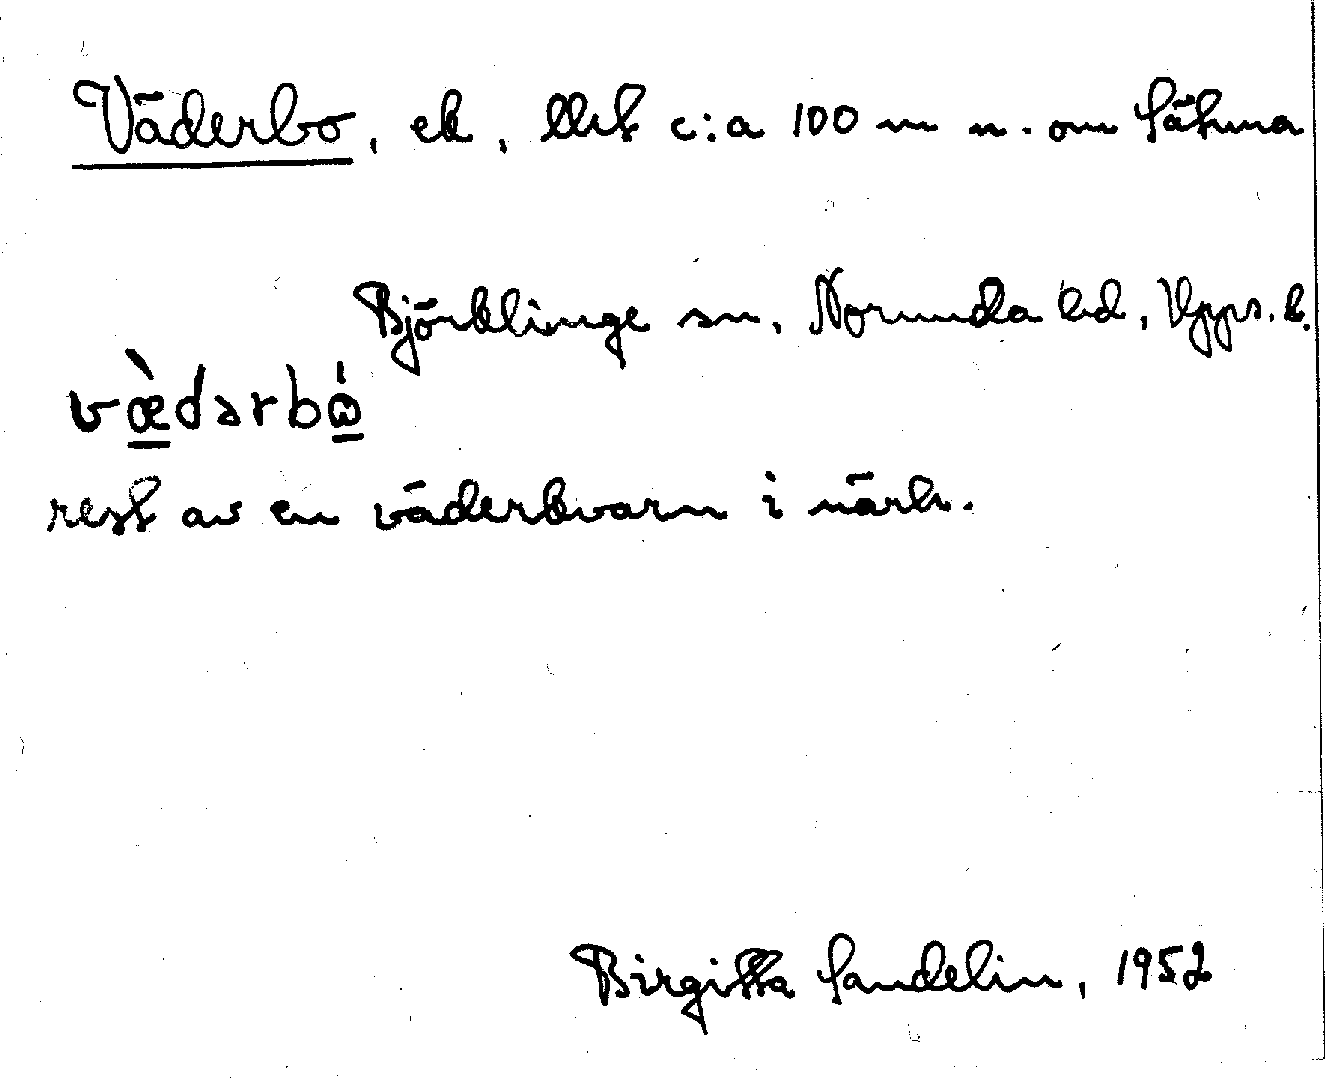 Väderbo, ek, llet c:a 100 m n. om Sätuna
Björklinge sn, Norunda hd, Upps. l.
væ̀dərbω̇
rest av en väderkvarn i närh.
Birgitta Sandelin, 1952